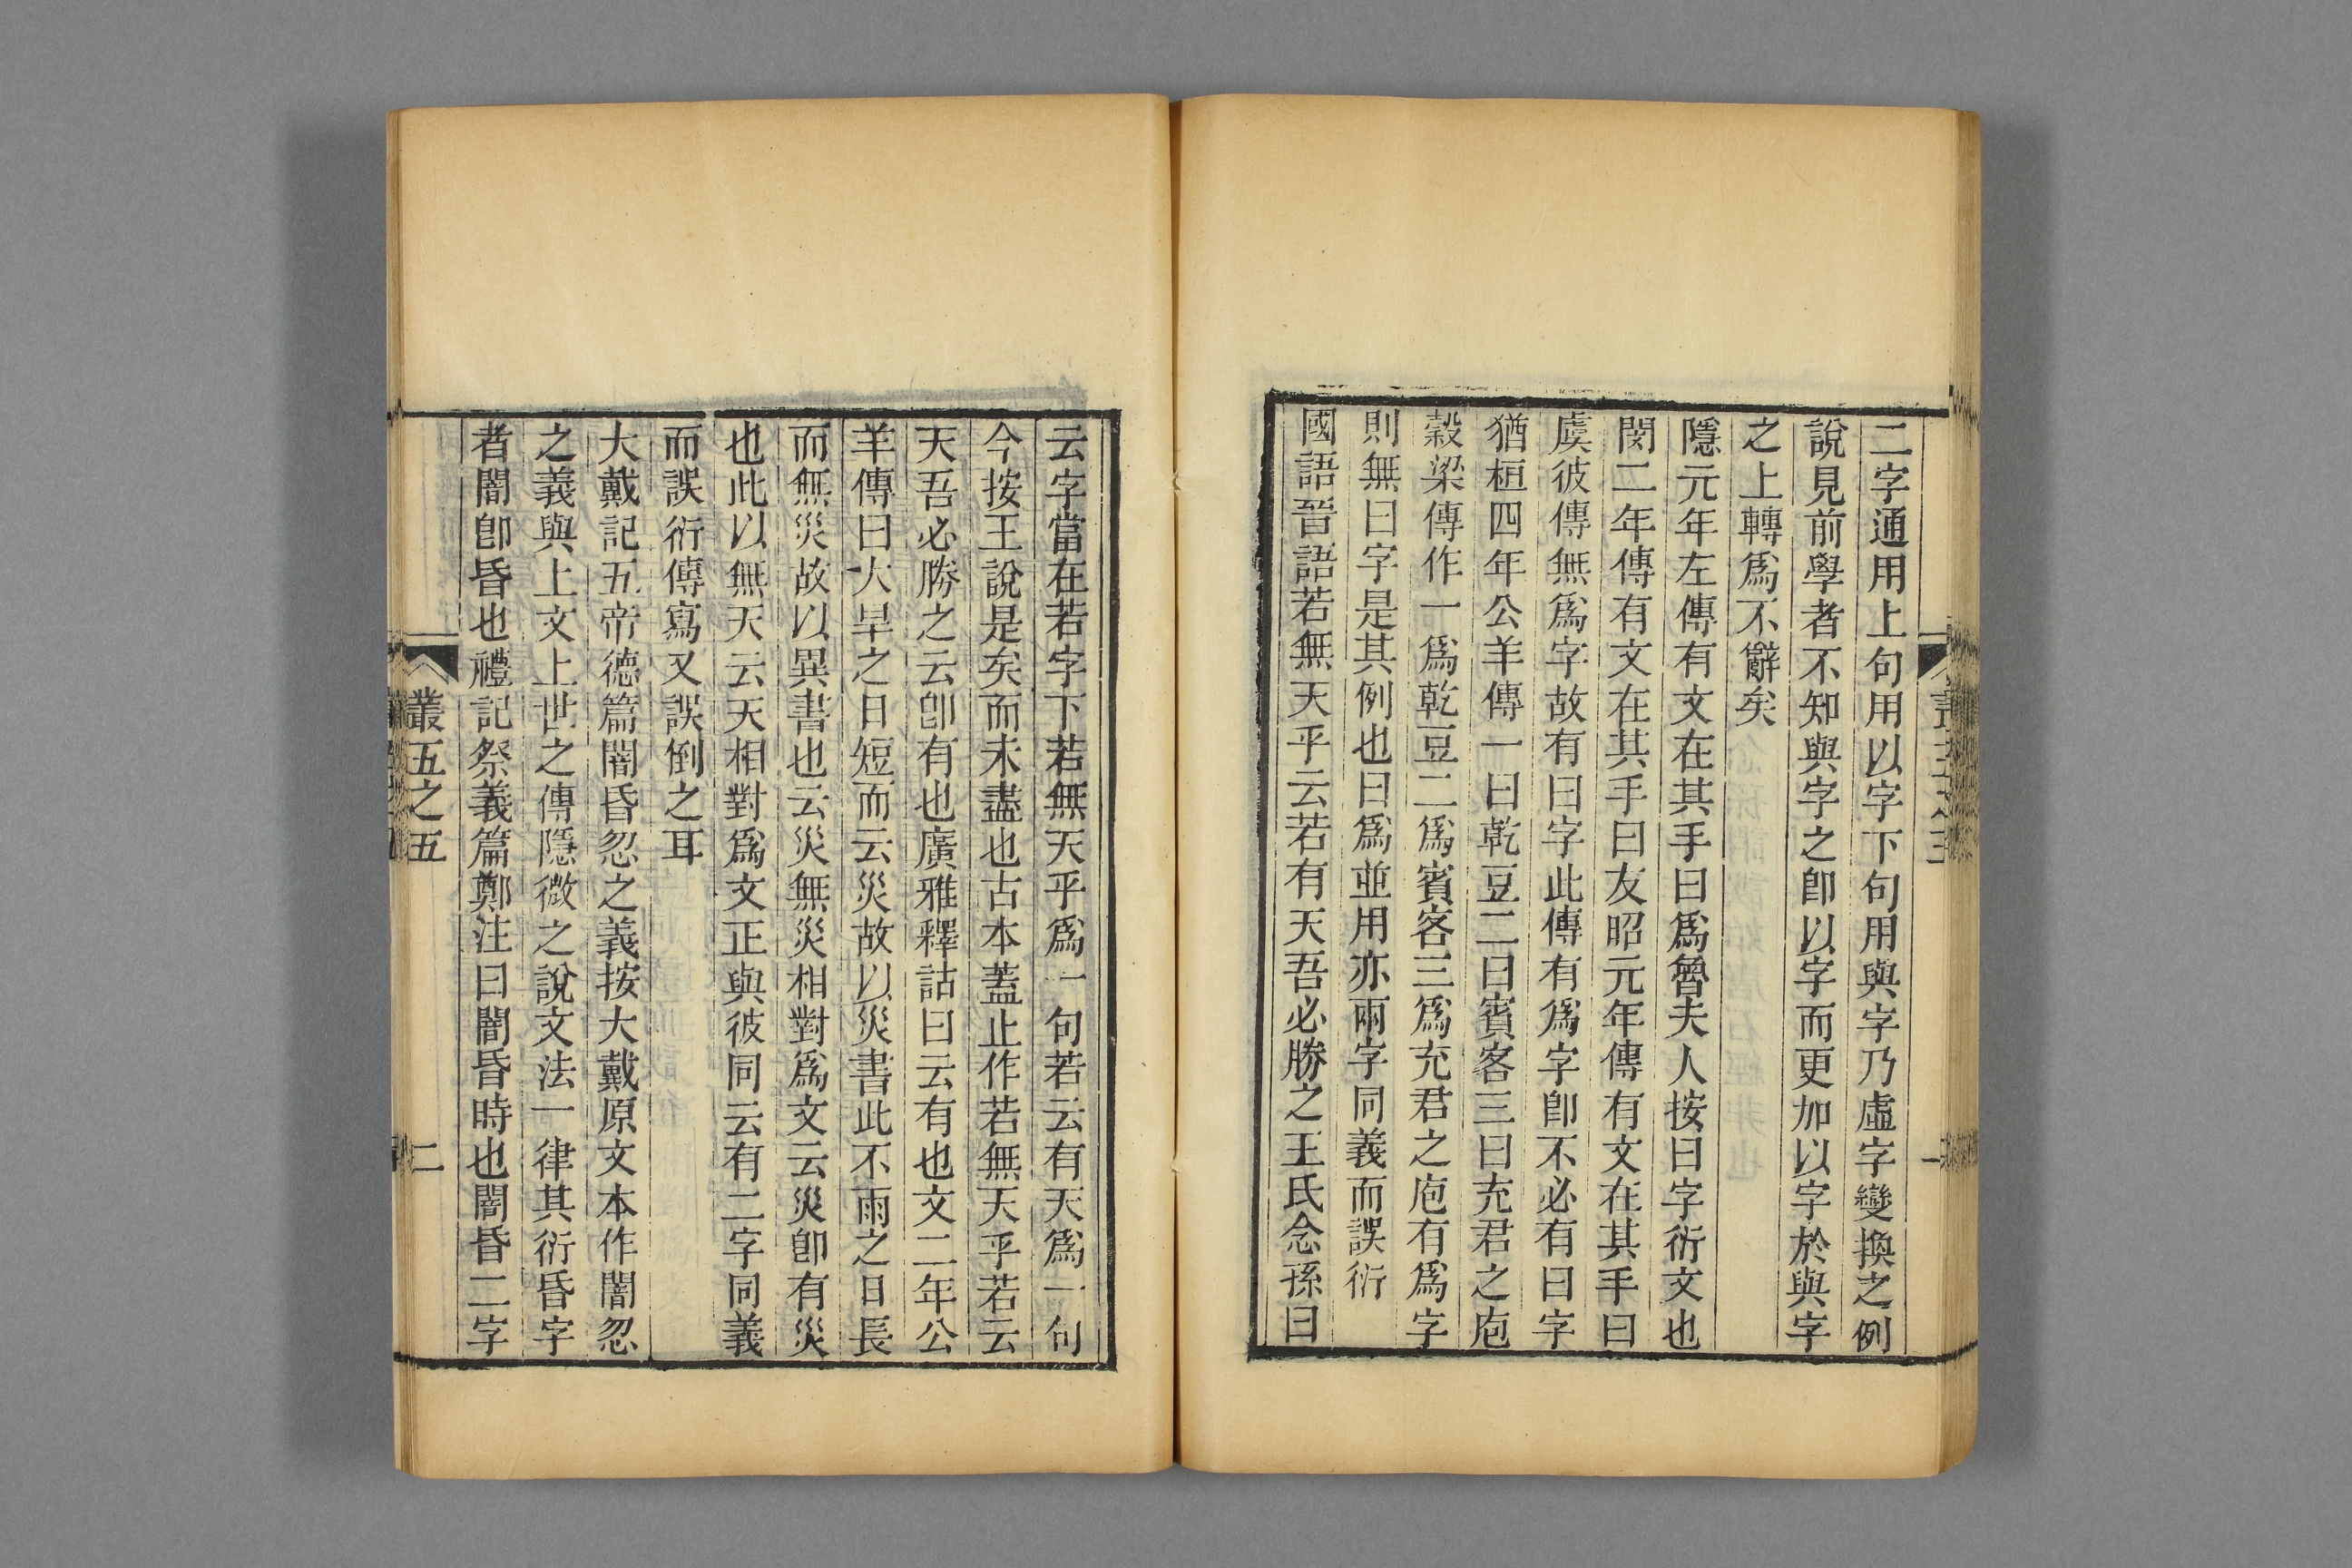 二字通用上句用以字下句用與字乃虛字變換之例
說見前學者不知與字之卽以字而更加以字於與字
之上轉爲不辭矣
隱元年左傳有文在其手曰爲魯夫人按曰字衍文也
閔二年傳有文在其手曰友昭元年傳有文在其手曰
虞彼傳無爲字故有曰字此傳有爲字卽不必有曰字
猶桓四年公羊傳一曰乾豆二曰賓客三曰充君之庖
穀梁傳作一爲乾豆二爲賓客三爲充君之庖有爲字
則無曰字是其例也曰爲並用亦兩字同義而誤衍
國語晉語若無天乎云若有天吾必勝之王氏念孫曰
云字當在若字下若無天乎爲一句若云有天爲一句
今按王說是矣而未盡也古本蓋止作若無天乎若云
天吾必勝之云卽有也廣雅釋詁曰云有也文二年公
羊傳曰大旱之日短而云災故以災書此不雨之日長
而無災故以異書也云災無災相對爲文云災卽有災
也此以無天云天相對爲文正與彼同云有二字同義
而誤衍傳寫又誤倒之耳
大戴記五帝德篇闇昏忽之義按大戴原文本作闇忽
之義與上文上世之傳隱微之說文法一律其衍昏字
者闇卽昏也禮記祭義篇鄭注曰闇昏時也闇昏二字
叢五之五
二